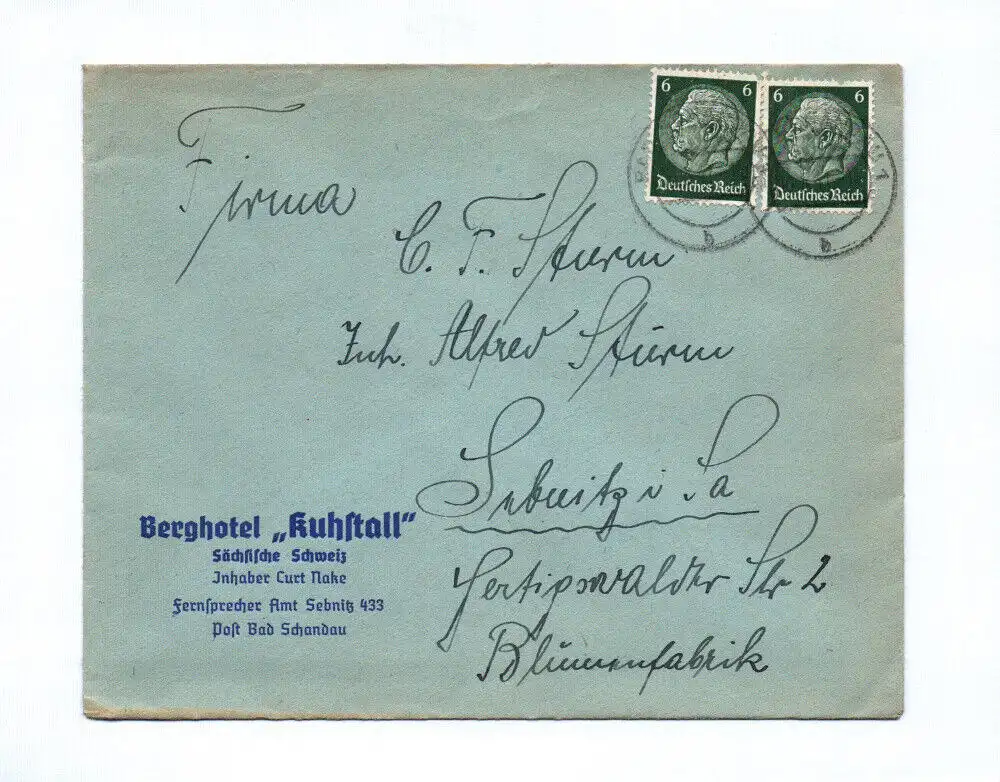 6 6
Deutsches Reich
6 6
Deutsches Reich
b
b
Firma
C. F. Sturm
Inh. Alfred Sturm
Sebnitz i Sa
Hertigswalder Str 2
Blumenfabrik
Berghotel „Kuhstall“
Sächsische Schweiz
Inhaber Curt Nake
Fernsprecher Amt Sebnitz 433
Post Bad Schandau